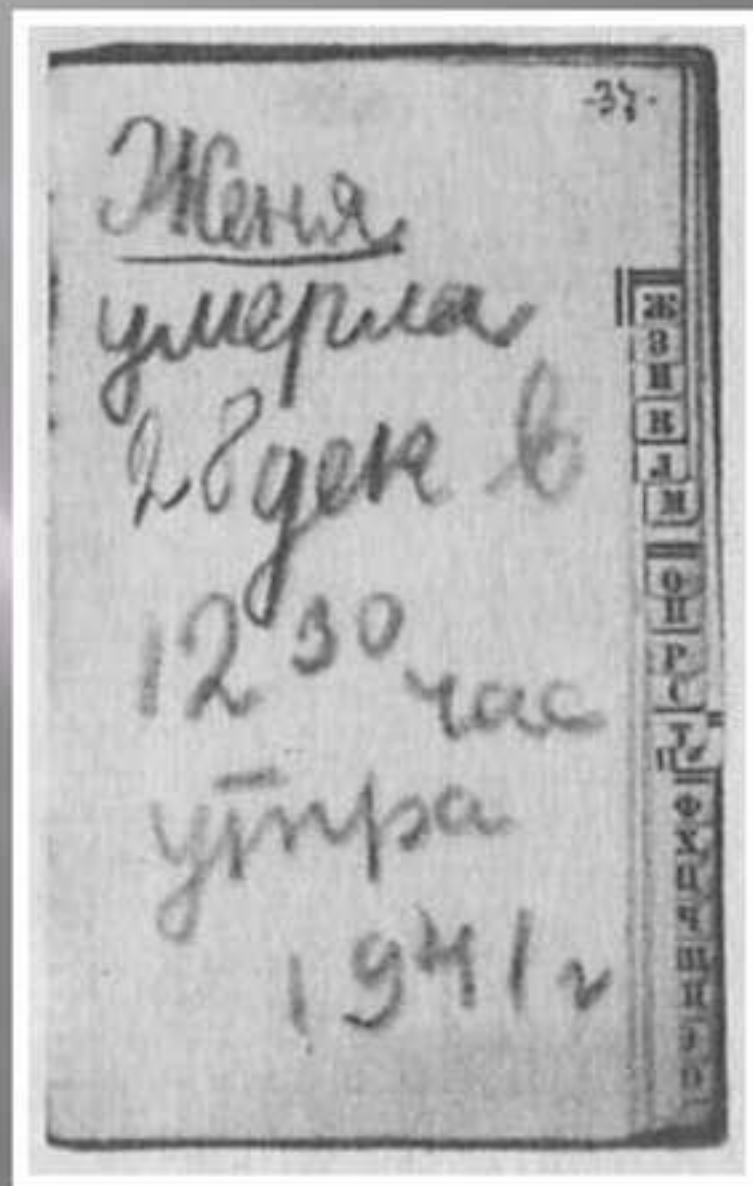 -37-
Женя
умерла
28 дек в
12 30 час
утра
1941 г
Ж
З
И
К
Л
М
О
П
Р
С
Т
Ф
Х
Ц
Ч
Ш